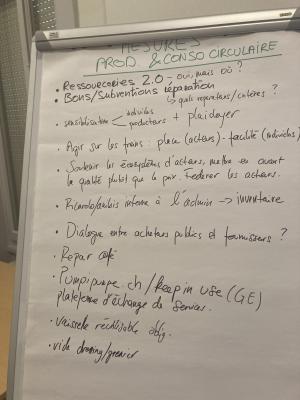 MESURES
PROD & CONSO CIRCULAIRE
• Ressourceries 2.0 - oui, mais où ?
• Bons/Subventions réparation
↳ quels réparateurs/critères ?
• sensibilisation < individus
producteurs + plaidoyer
• Agir sur les trans : place (acteurs) - facilité (individus)
• Soutenir les écosystèmes d'acteurs, mettre en avant
la qualité plutôt que le prix. Fédérer les acteurs.
• interne à l'admin → inventaire
• Dialogue entre acheteurs publics et fournisseurs ?
• Repar café
• Pumpipumpe.ch / keep in use (GE)
plateforme d'échange de services.
• vaisselle réutilisable oblig.
• vide dressing/grenier